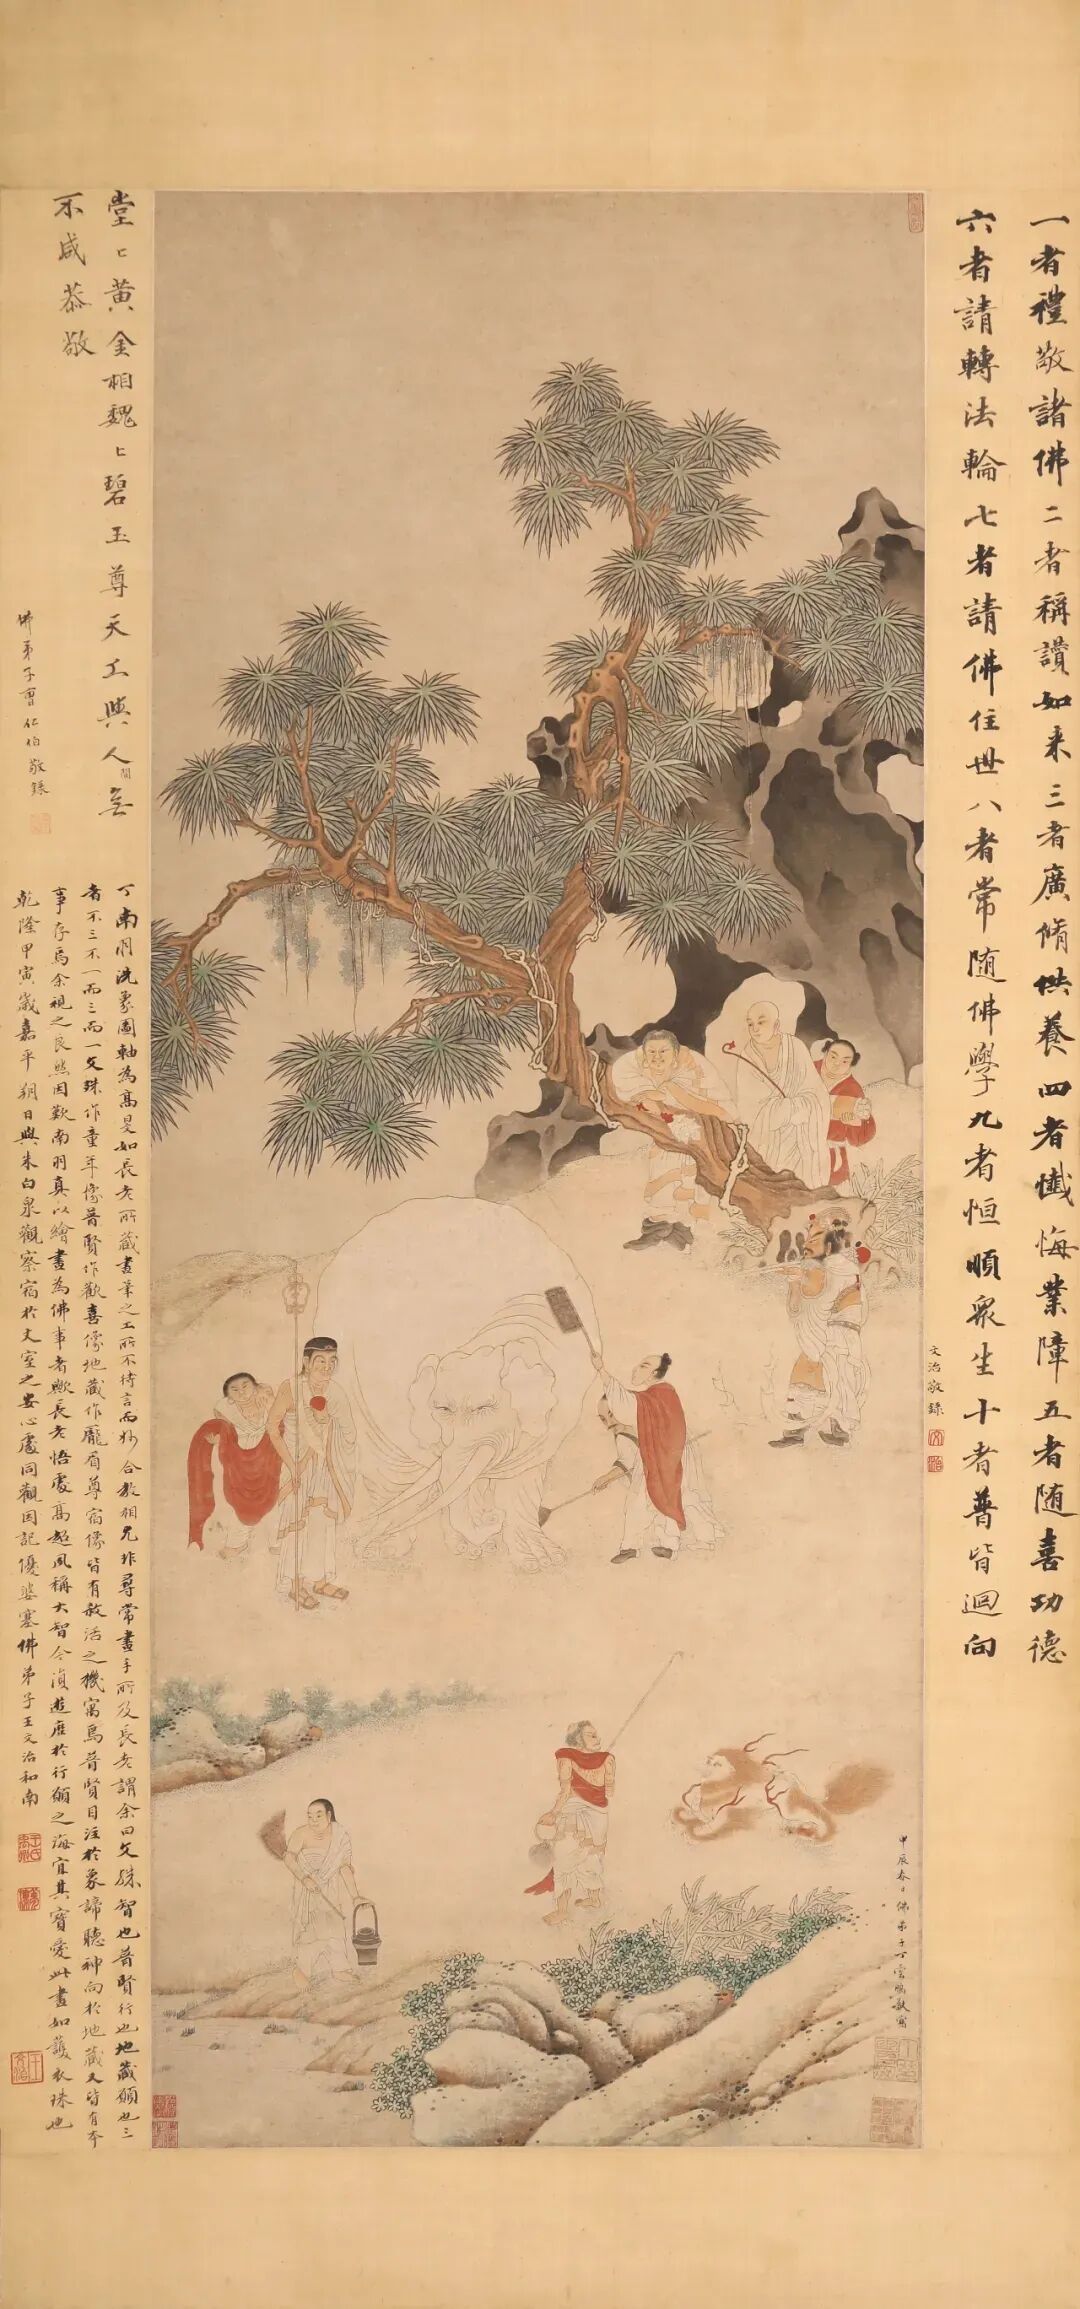 一者禮敬諸佛二者稱讚如来三者廣脩供養四者懺悔業障五者随喜功德
六者請轉法輪七者請佛住世八者常随佛學九者恒順眾生十者普皆迴向
文治敬錄
甲辰春日佛弟子丁雲鵬敬寫
堂〻黄金相巍〻碧玉尊天工與人間無
不咸恭敬
佛弟子曹仁伯敬錄
丁南羽洗象圖軸為高旻如長老所藏畫筆之工所不待言而妙合教相允非尋常畫手所及長老謂余曰文殊智也普賢行也地藏願也三
者不三不一而三而一文殊作童年像普賢作歡喜像地藏作龐眉尊宿像皆有敍活之機寓焉普賢目注於象諦聽神向於地藏又皆有本
事存焉余視之良然因歎南羽真以繪畫為佛事者歟長老悟處高超夙稱大智今湞遊歷於行願之海宜其寶愛此畫如護衣珠也
乾隆甲寅歲嘉平朔日與朱白泉觀察宿於文室之安心處同觀因記優婆塞佛弟子王文治和南